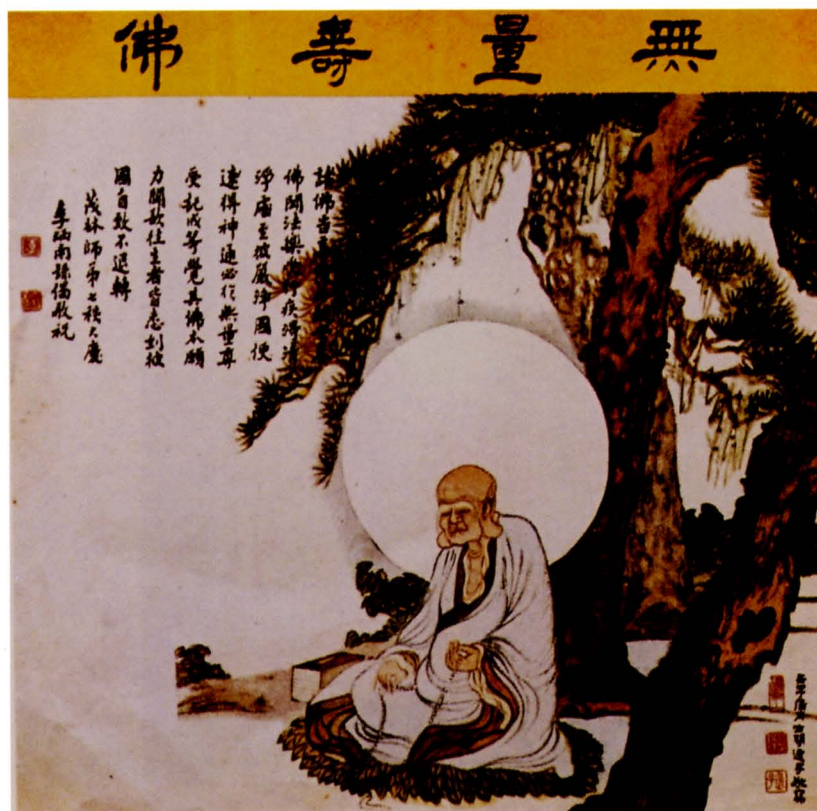 無量壽佛
諸佛告
佛聞法樂受行疾得清
淨處至彼嚴淨國便
速得神通必於無量尊
受記成等覺其佛本願
力聞欲往生者皆悉到彼
國自致不退轉
茂林師弟七秩大慶
李炳南錄偈敬祝